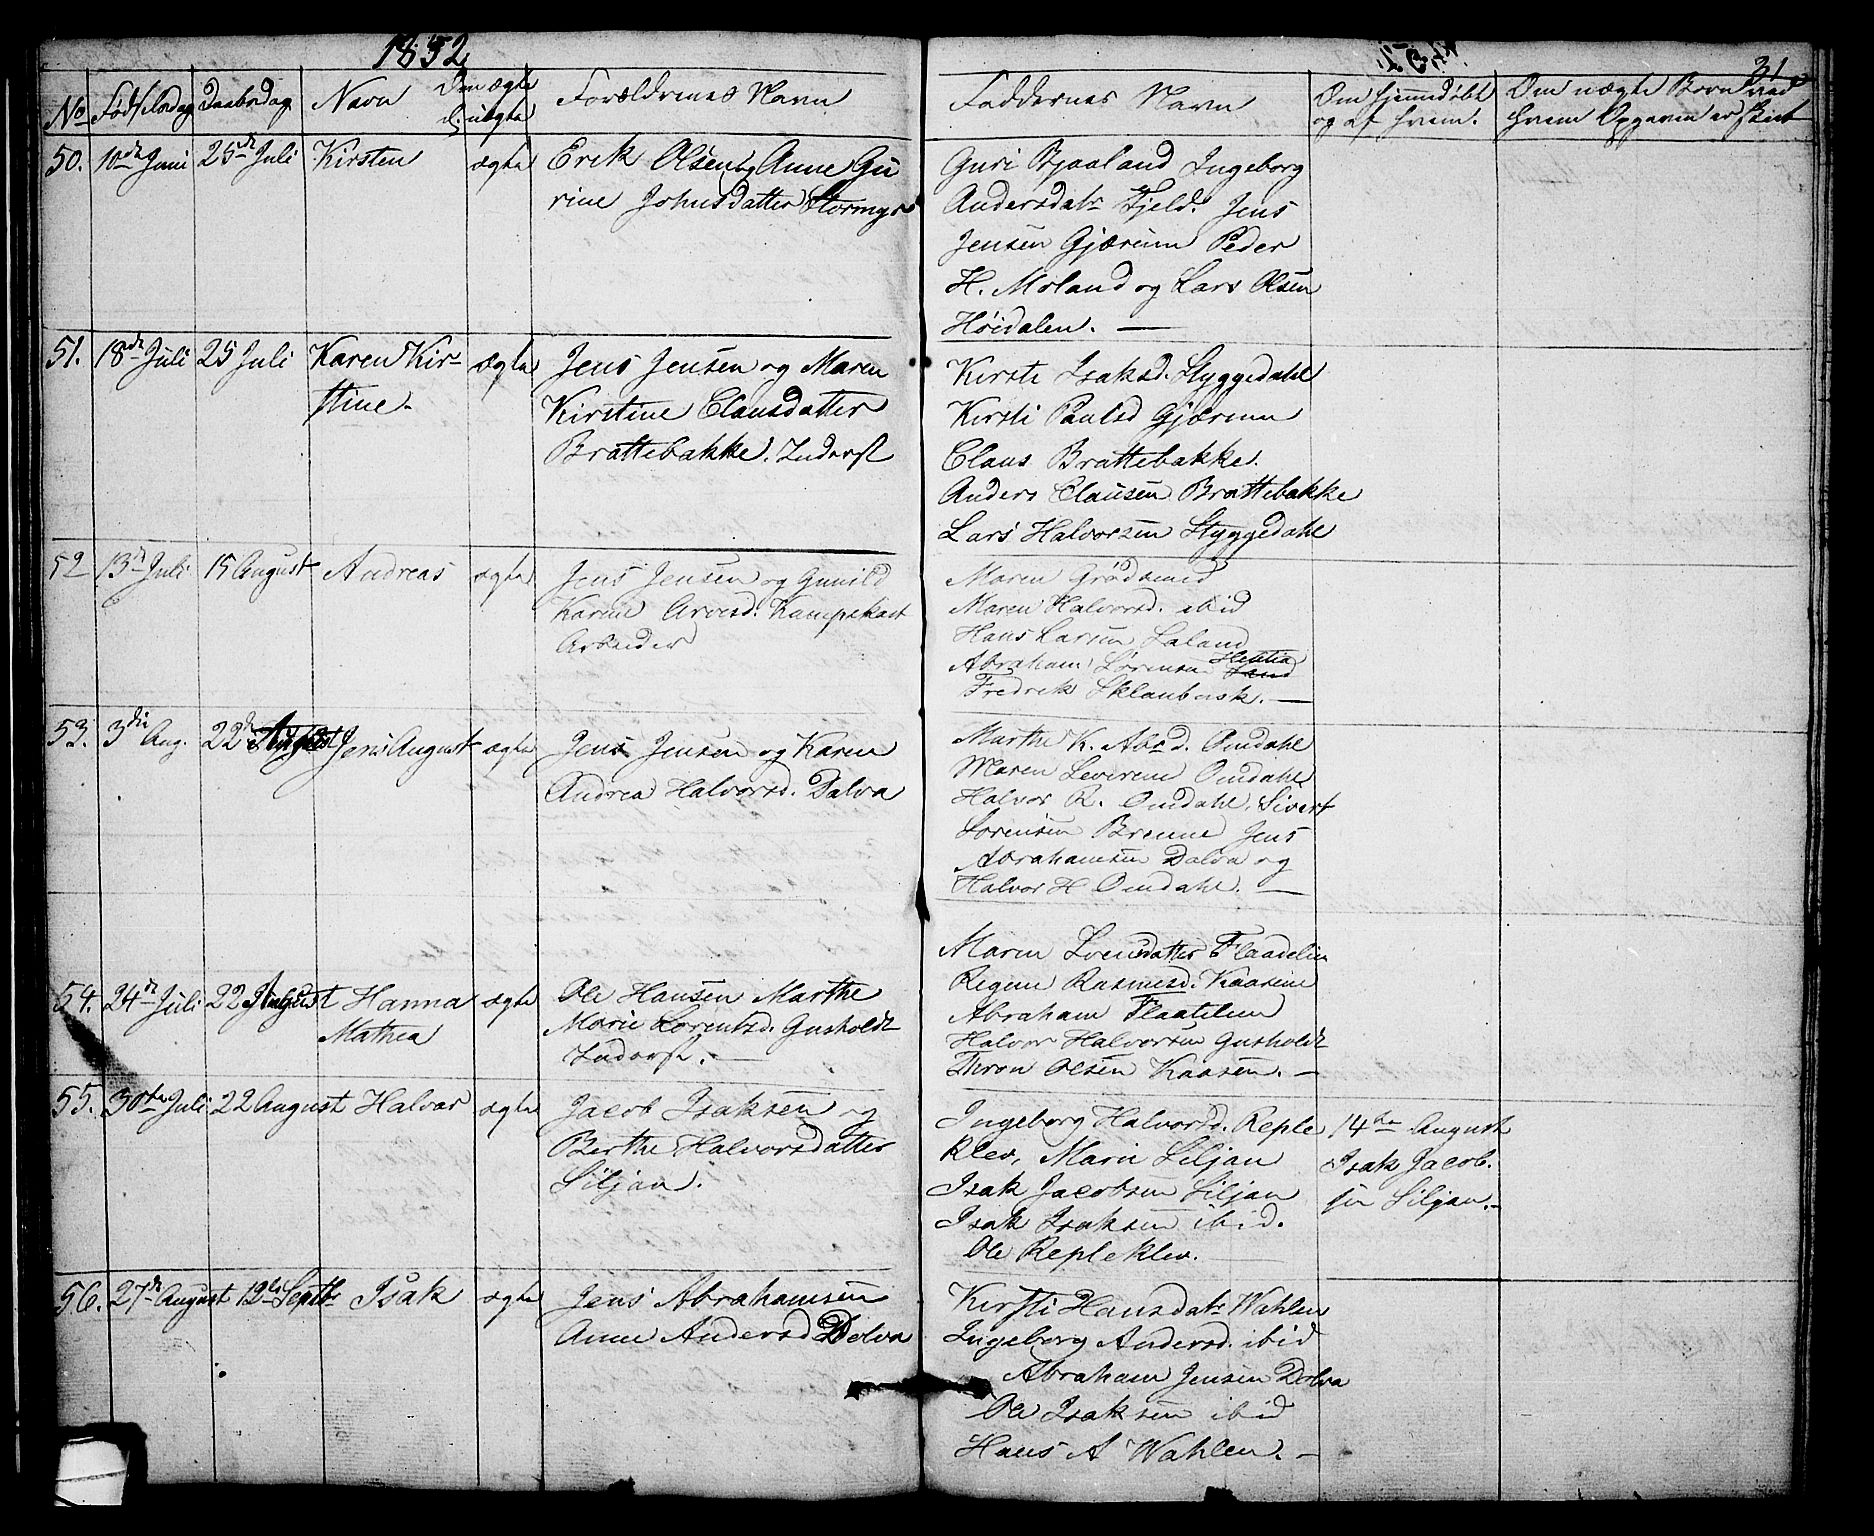 1852
31
No Fødselsdag Daabsdag Navn Om ægte el. uægte Forældrenes Navn Faddernes Navn Om hjemmedøbt og af hvem. Om uægte Børn ved hvem Opgaven er skeet
50. 10de Juni 25de Juli Kirsten ægte
Erik Olsen og Anne Gu
rine Johnsdatter Stormyr
Guri Bjaaland Ingeborg
Andersdatr Fjeld. Jens
Jensen Gjærum Peder
H. Moland og Lars Olsen
Høidalen. —
51. 18de Juli 25 Juli Karen Kir-
stine. ægte
Jens Jensen og Maren
Kirstine Clausdatter
Brattebakke. Inderst
Kirsti Isaksd. Styggedahl
Kirsti Paulsd Gjærum
Claus Brattebakke.
Anders Clausen Brattebakke
Lars Halvorsen Styggedahl
52 13de Juli 15 August Andreas ægte
Jens Jensen og Gunild
Karine Arvesd. Kampekast
Arbeider
Maren Grødsmed
Maren Halvorsd. ibid
Hans Larsen Laland
Abraham Sørensen
Fredrik Sklaubesk. —
53. 3die Aug. 22de August Jens August ægte
Jens Jensen og Karen
Andrea Halvorsd. Dalva
Marthe K. Abrd. Omdahl
Maren Leverene Omdahl
Halvor R. Omdahl, Sivert
Sorensen Brenne Jens
Abrahamsen Dalva og
Halvor H Omdahl. —
54. 24de Juli 22 August Hanna
Mathea ægte
Ole Hansen Marthe
Marie Lorentsd. Gusholdt
Inderst. —
Maren Svensdatter Flaadelien
Regine Rasmusd. Kaasene
Abraham Flaatelien
Halvor Halvorsen Gusholdt
Thron Olsen Kaasen. —
55. 30te Juli 22 August Halvor ægte
Jacob Isaksen og
Berthe Halvorsdatter
Siljan.
Ingeborg Halvorsd. Reple
klev, Marie Siljan
Isak Jacobsen Siljan
Isak Isaksen ibid.
Ole Repleklev.
14de August
Isak Jacob.
sen Siljan. -
56. 27de August 12te Septbr Isak ægte
Jens Abrahamsen
Anne Andersd Dolva
Kirsti Hansdatr Wahlen
Ingeborg Andersd. ibid
Abraham Jensen Dolva
Ole Isaksen ibid
Hans A Wahlen. —